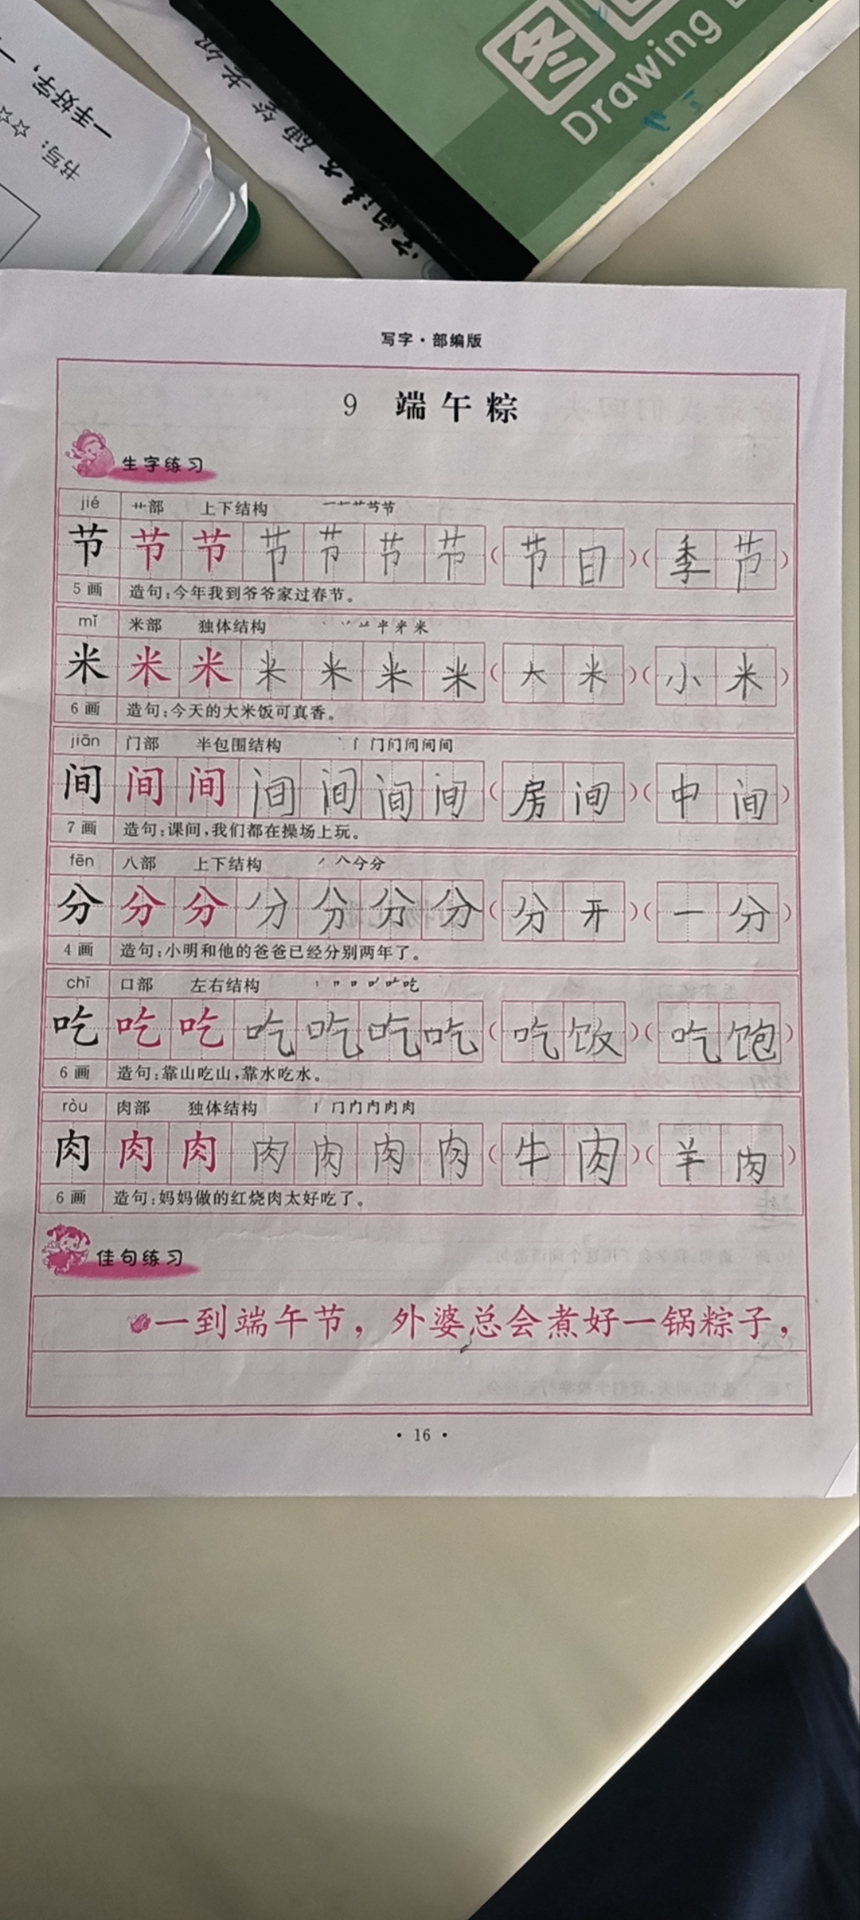 一手好字，一
书写：☆☆
图
Drawing
写字·部编版
9 端午粽
生字练习
jié 艹部 上下结构
节 节 节 节 节 节 节 （节日）（季节）
5画 造句：今年我到爷爷家过春节。
mǐ 米部 独体结构
米 米 米 米 米 米 米 （大米）（小米）
6画 造句：今天的大米饭可真香。
jiān 门部 半包围结构
间 间 间 间 间 间 间 （房间）（中间）
7画 造句：课间，我们都在操场上玩。
fēn 八部 上下结构
分 分 分 分 分 分 分 （分开）（一分）
4画 造句：小明和他的爸爸已经分别两年了。
chī 口部 左右结构
吃 吃 吃 吃 吃 吃 吃 （吃饭）（吃饱）
6画 造句：靠山吃山，靠水吃水。
ròu 肉部 独体结构
肉 肉 肉 肉 肉 肉 肉 （牛肉）（羊肉）
6画 造句：妈妈做的红烧肉太好吃了。
佳句练习
一到端午节，外婆总会煮好一锅粽子，
·16·